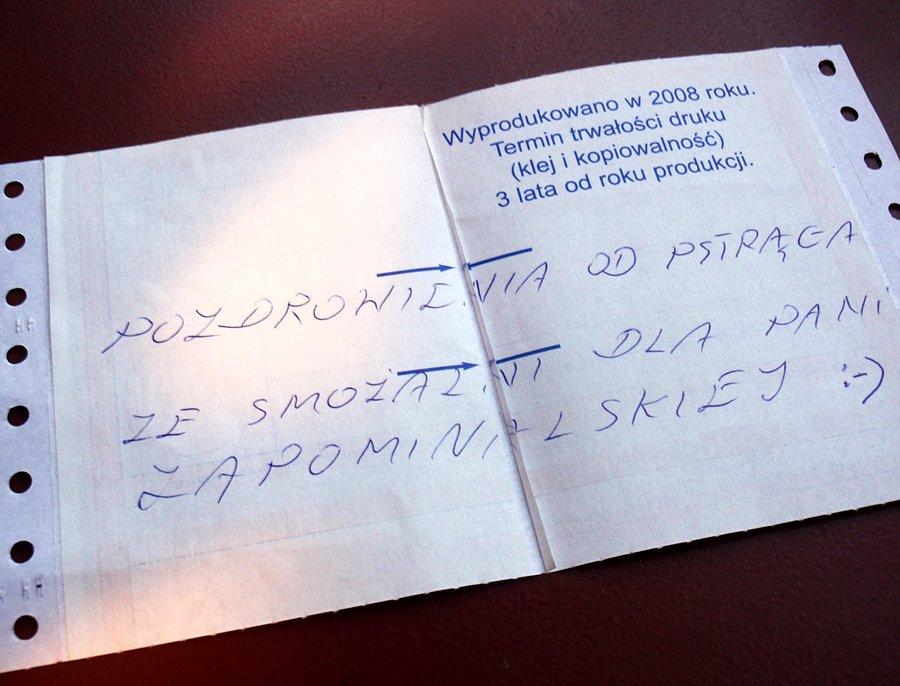 Wyprodukowano w 2008 roku.
Termin trwałości druku
(klej i kopiowalność)
3 lata od roku produkcji.
POZDROWIENIA OD PSTRĄGA
ZE SMOŻALNI DLA PANI
ZAPOMINALSKIEJ :-)